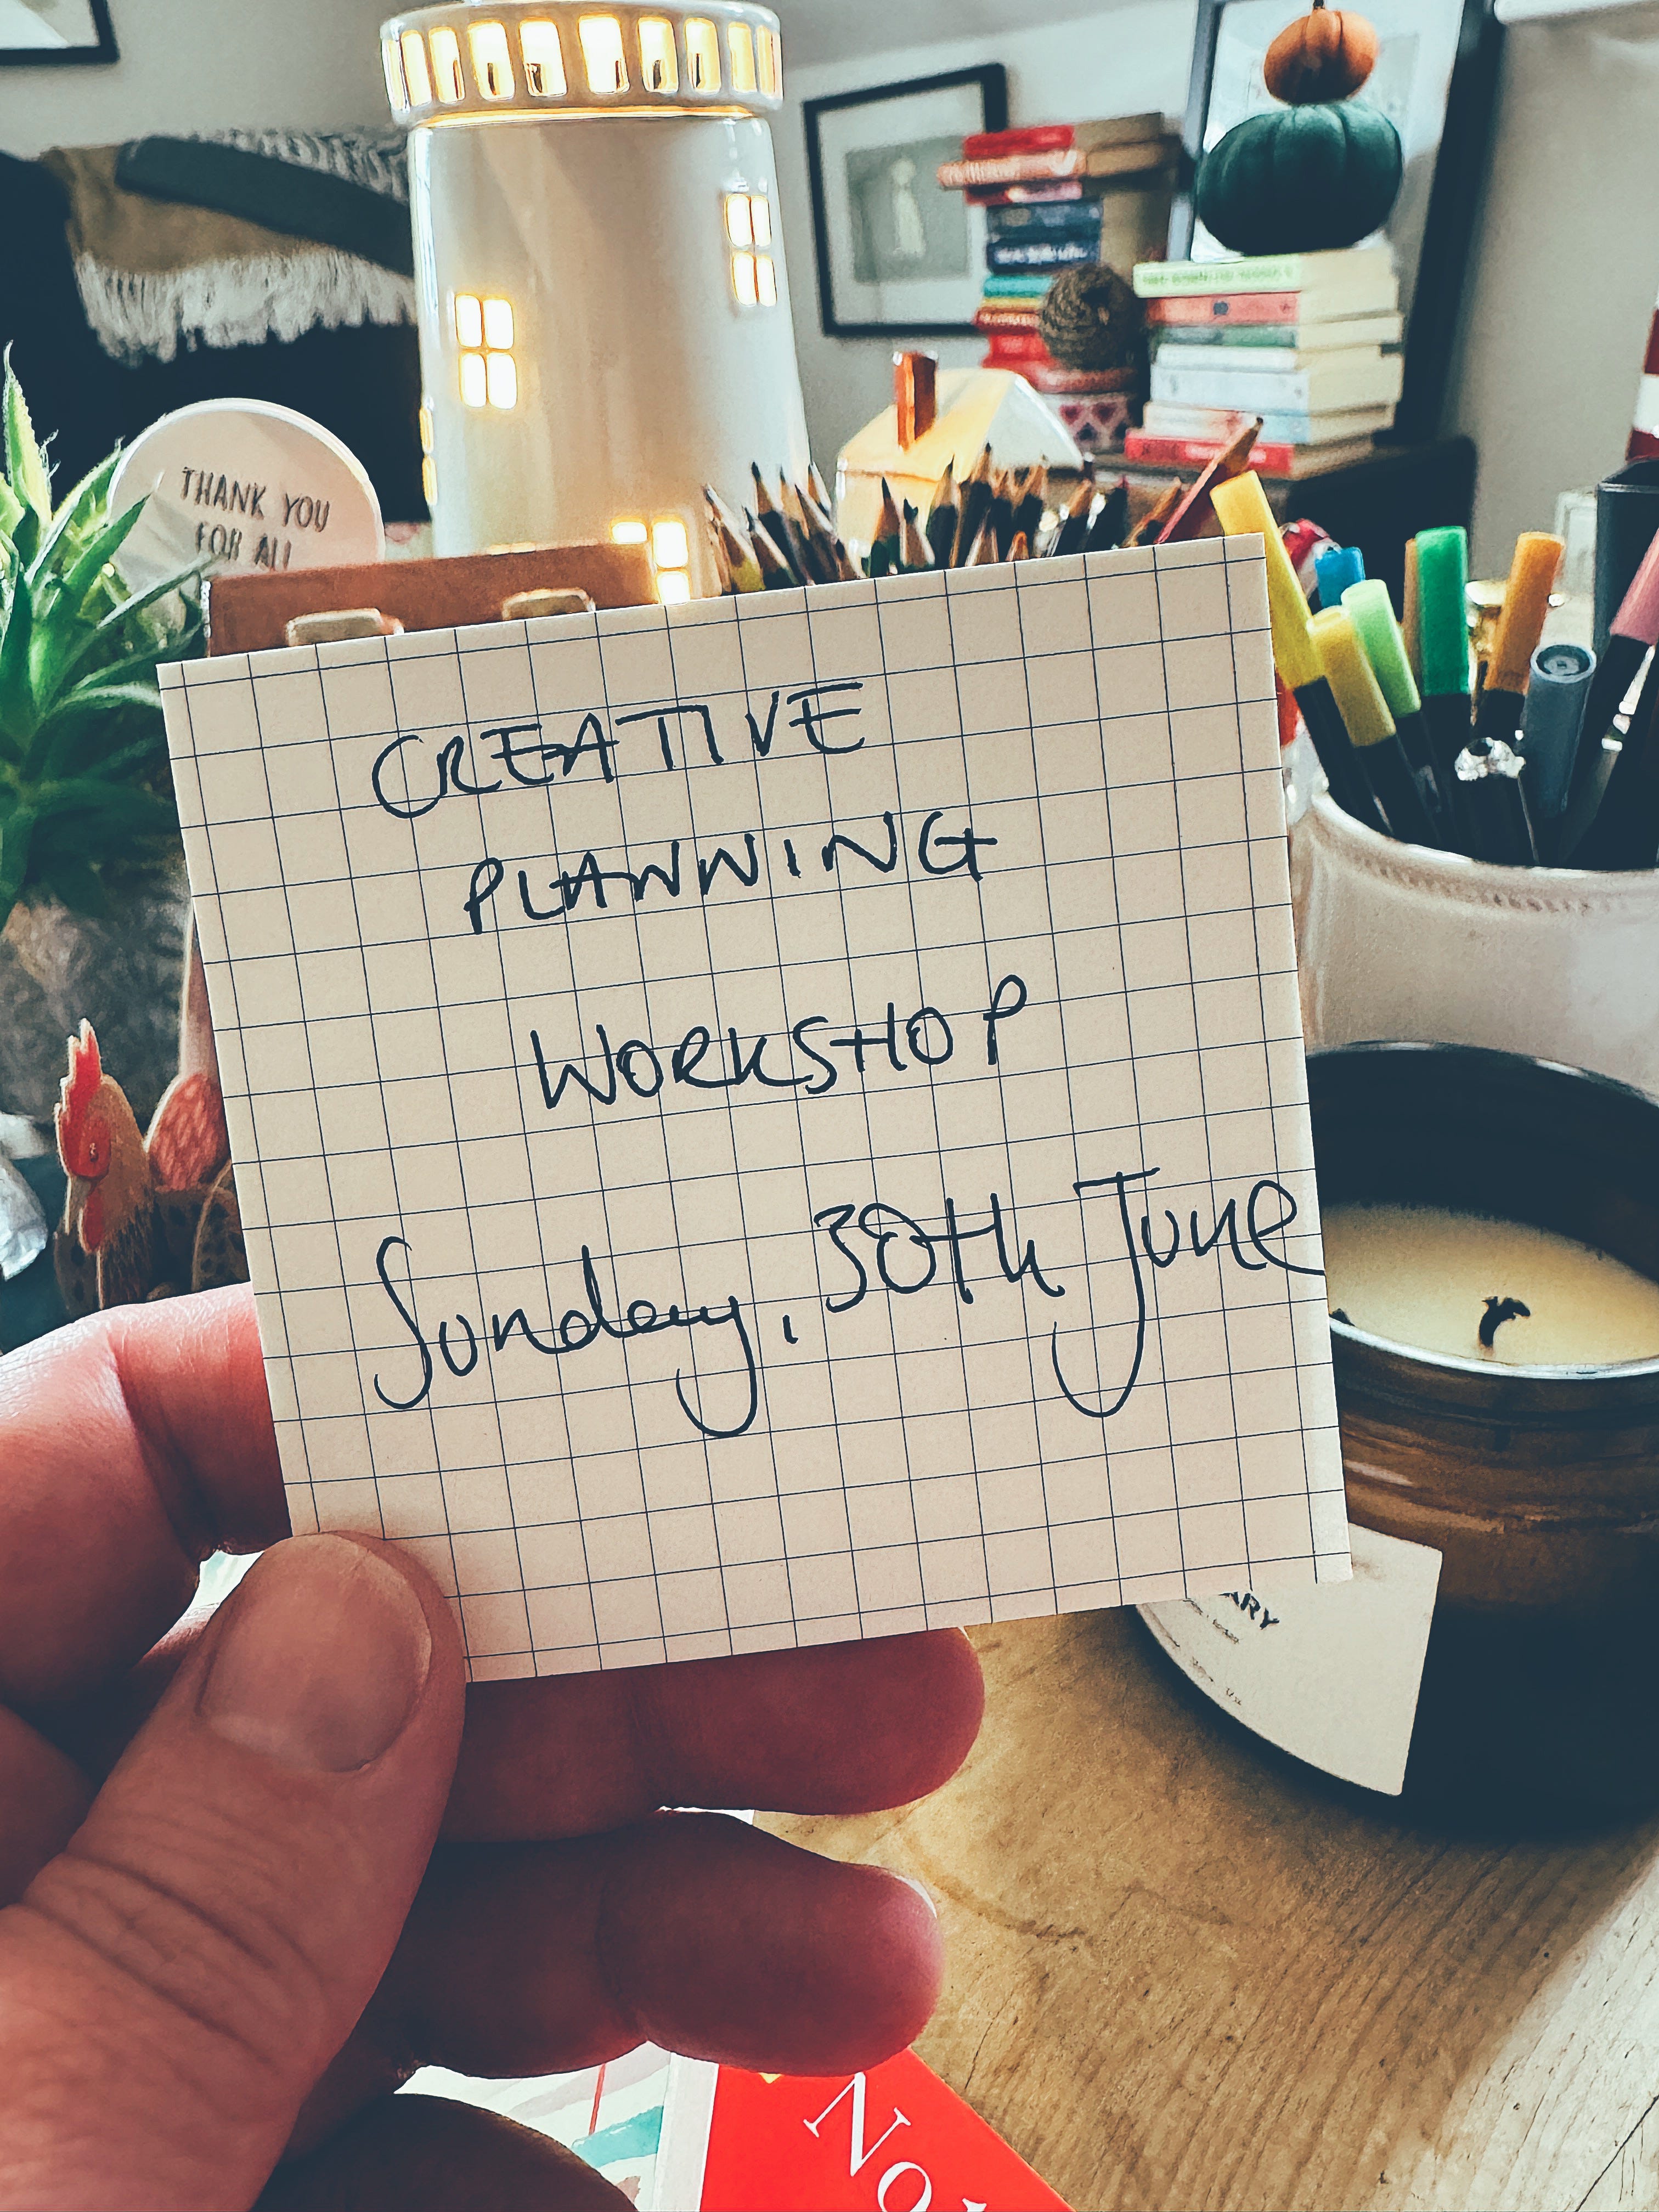 THANK YOU
FOR ALL
CREATIVE
PLANNING
WORKSHOP
Sunday, 30th June
ARY
No